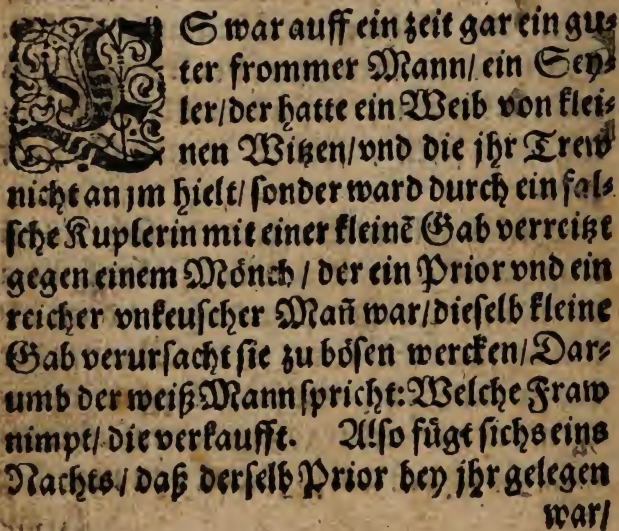 ES war auff ein zeit gar ein gu⸗
ter frommer Mann/ ein Sey⸗
ler/der hatte ein Weib von klei⸗
nen Witzen/vnd die jhr Trew
nicht an jm hielt/ sonder ward durch ein fal⸗
sche Kuplerin mit einer kleinē Gab verreitzt
gegen einem Mönch / der ein Prior vnd ein
reicher vnkeuscher Mañ war/dieselb kleine
Gab verursacht sie zu bösen wercken/Dar⸗
umb der weiß Mann spricht: Welche Fraw
nimpt/ die verkaufft. Also fügt sichs eins
Nachts/ daß derselb Prior bey jhr gelegen
war/